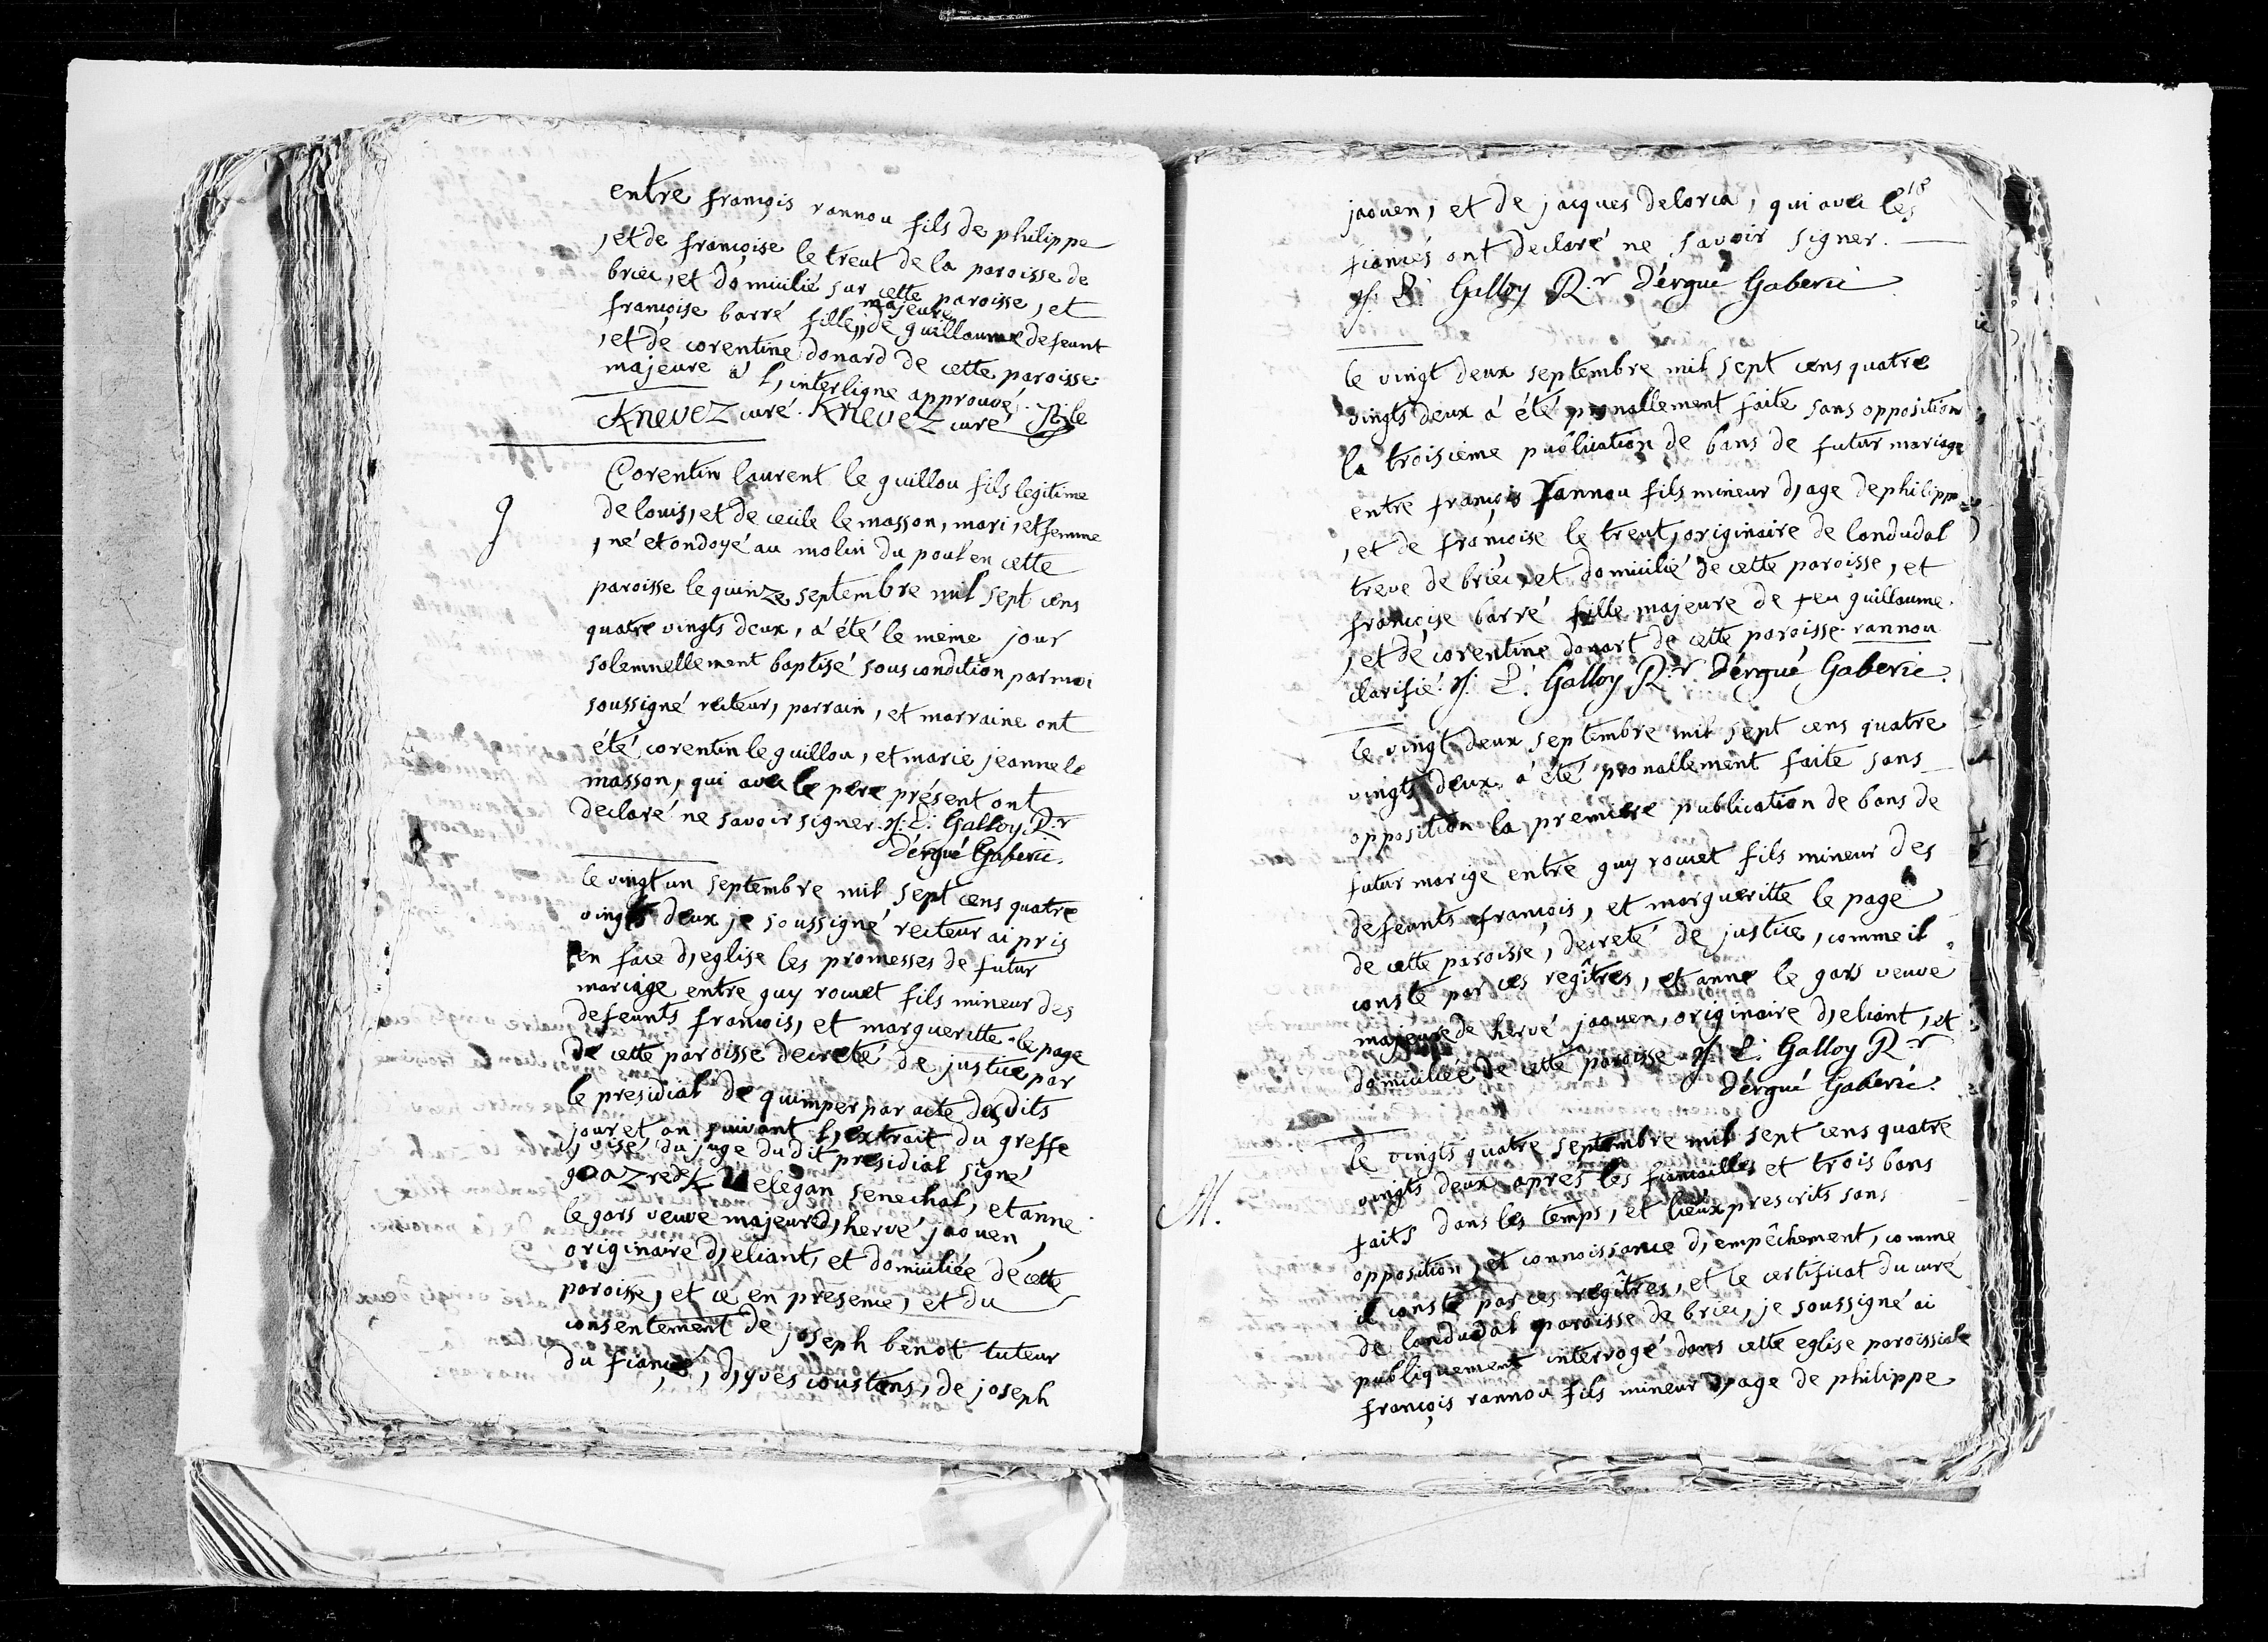 entre françois rannou fils de philippe
, et de françoise le treut de la paroisse de
briec, et domicilié sur cette paroisse, et
majeure
françoise barré fille,, de guillaume defeunt
, et de corentine donard de cette paroisse
majeure à l, interligne approuvé.
Knevez curé. Knevez curé
Corentin laurent le guillou fils legitime
de louis, et de cecile le masson, mari, et femme
, né et ondoyé au molin du poul en cette
paroisse le quinze septembre mil sept cens
quatre vingts deux, à été le même jour
solemnellement baptisé sous condition par moi
soussigné recteur, parrain, et marraine ont
été corentin le guillou, et marie jeanne le
masson, qui avec le pere présent ont
declaré ne savoir signer. Galloy R.r
dérgué Gaberic.
le vingt un septembre mil sept cens quatre
vingts deux je soussigné recteur ai pris
en face d, eglise les promesses de futur
mariage entre guy rouet fils mineur des
defeunts francois, et margueritte le page
de cette paroisse decreté de justice par
le presidial de quimper par acte desdits
jour et an suivant l, extrait du greffe
visé du juge dudit presidial signé
goazre senechal, et anne
le gars veuve majeure d, hervé jaouen,
originaire d, eliant, et domiciliée de cette
paroisse, et ce en presence, et du
consentement de joseph benot tuteur
du fiancé, d, yves coustans, de joseph
18
jaouen, et de jacques delorca, qui avec les
fiancés ont declaré ne savoir signer.
Galloy R.r dérgué Gaberic
le vingt deux septembre mil sept cens quatre
vingts deux à été pronallement faite sans opposition
la troisieme publication de bans de futur mariage
entre françois rannou fils mineur d, age de philippe
, et de françoise le treut, originaire de landudal
treve de briec, et domicilié de cette paroisse, et
françoise barré fille majeure de feu guillaume
, et de corentine donart de cette paroisse. rannou
clarifié. Galloy R.r dérgué Gaberic.
le vingt deux septembre mil sept cens quatre
vingts deux à été pronallement faite sans
opposition la premiere publication de bans de
futur marige entre guy rouet fils mineur des
defeunts françois, et margueritte le page
de cette paroisse, decreté de justice, comme il
conste par ces regîtres, et anne le gars veuve
majeure de hervé jaouen, originaire d, eliant, et
domiciliée de cette paroisse Galloy R.r
dérgué Gaberic.
M.
le vingts quatre septembre mil sept cens quatre
vingts deux aprés les fiancailles et trois bans
faits dans les temps, et lieux prescrits sans
opposition, et connoissance d, empêchement, comme
il conste par ces regîtres, et le certificat du curé
de landudal paroisse de briec, je soussigné ai
publiquement interrogé dans cette eglise paroissiale
françois rannou fils mineur d, age de philippe